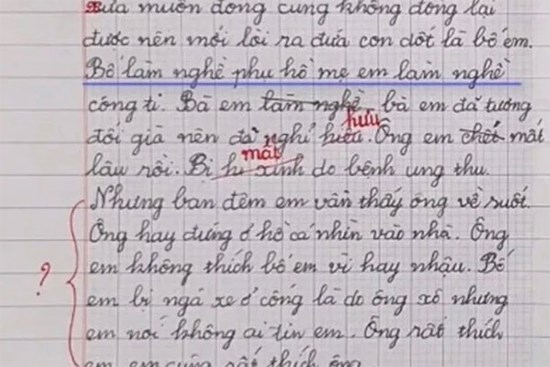 xưa muốn đóng cũng không đóng lại
được nên mới lòi ra đứa con dốt là bố em.
Bố làm nghề phụ hồ mẹ em làm nghề
công ti. Bà em làm nghề, bà em đã tương
hưu
đối già nên đã nghỉ hiêu. Ông em chết mất
mất
lâu rồi. Bị hi sinh do bệnh ung thu.
Nhưng ban đêm em vẫn thấy ông về suốt.
Ông hay đứng ở hồ cá nhìn vào nhà. Ông
?
em không thích bố em vì hay nhậu. Bố
em bị ngã xe ở cống là do ông xô nhưng
em nói không ai tin em. Ông rất thích
em em cũng rất thích ông